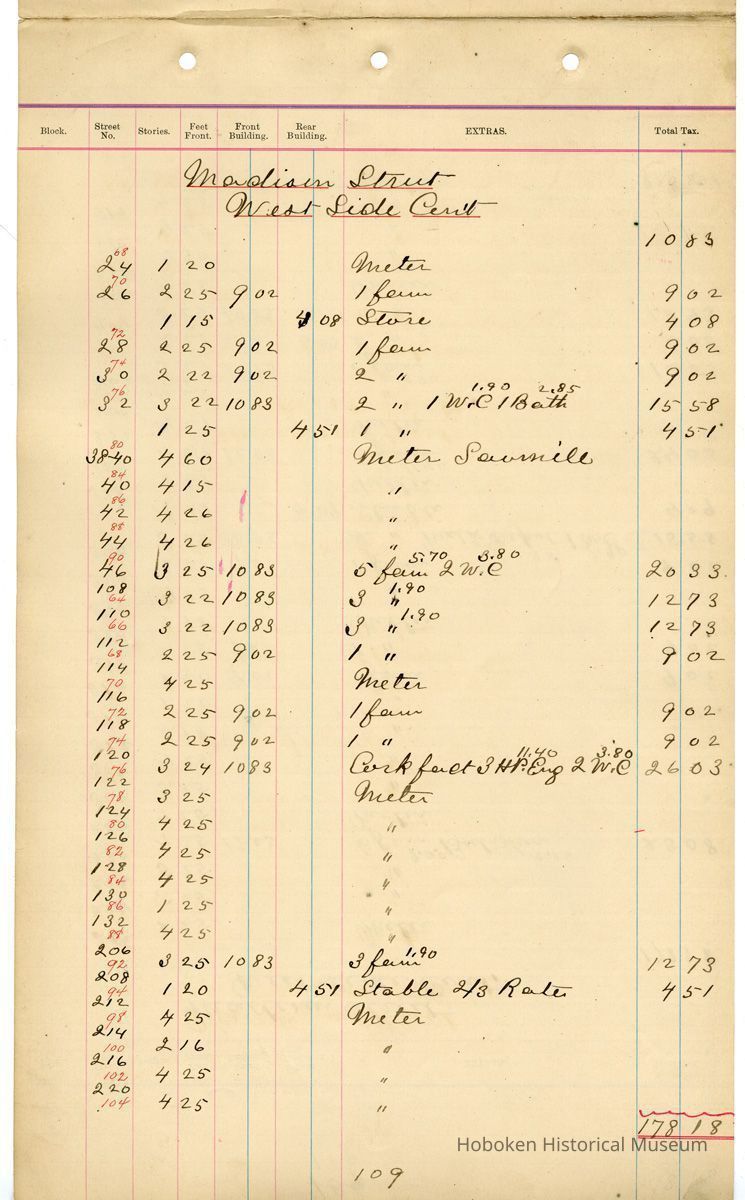 Block. Street No. Stories. Feet Front. Front Building. Rear Building. EXTRAS. Total Tax.
Madison Street
West Side Con't
10 83
68
24 1 20 Meter
70
26 2 25 9 02 1 fam 9 02
1 15 4 08 Store 4 08
72
28 2 25 9 02 1 fam 9 02
74
30 2 22 9 02 2 " 9 02
76 1.90 2.85
32 3 22 10 83 2 " 1 W.C 1 Bath 15 58
1 25 4 51 1 " 4 51
80
38-40 4 60 Meter Sawmill
84
40 4 15 "
86
42 4 26 "
88
44 4 26 "
90 5.70 3.80
46 3 25 10 83 5 fam 2 W.C 20 33
108 1.90
64 3 22 10 83 3 " 12 73
110 1.90
66 3 22 10 83 3 " 12 73
112
68 2 25 9 02 1 " 9 02
114
70 4 25 Meter
116
72 2 25 9 02 1 fam 9 02
118
74 2 25 9 02 1 " 9 02
120 11.40 3.80
76 3 24 10 83 Cork fact 3 H.P. Eng 2 W.C 26 03
122
78 3 25 Meter
124
80 4 25 "
126
82 4 25 "
128
84 4 25 "
130
86 1 25 "
132
88 4 25 "
206 1.90
92 3 25 10 83 3 fam 12 73
208
94 1 20 4 51 Stable 2/3 Rates 4 51
212
98 4 25 Meter
214
100 2 16 "
216
102 4 25 "
220
104 4 25 "
178 18
Hoboken Historical Museum
109